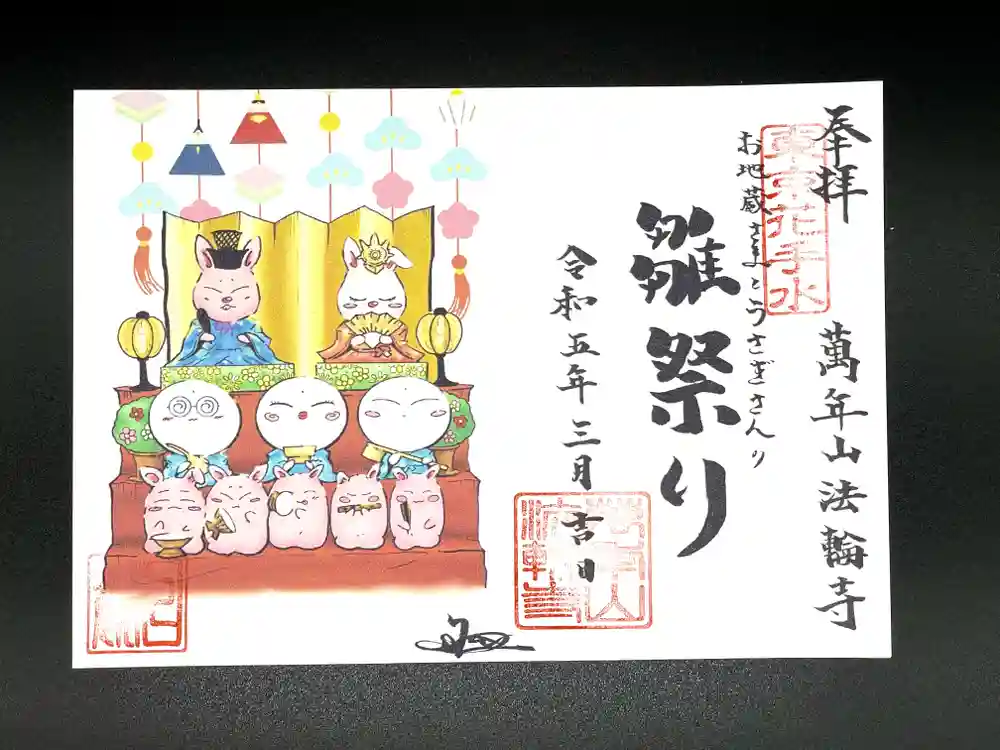 奉拝
萬年山法輪寺
東京花手水
お地蔵さまとうさぎさんの
雛祭り
令和五年三月吉日